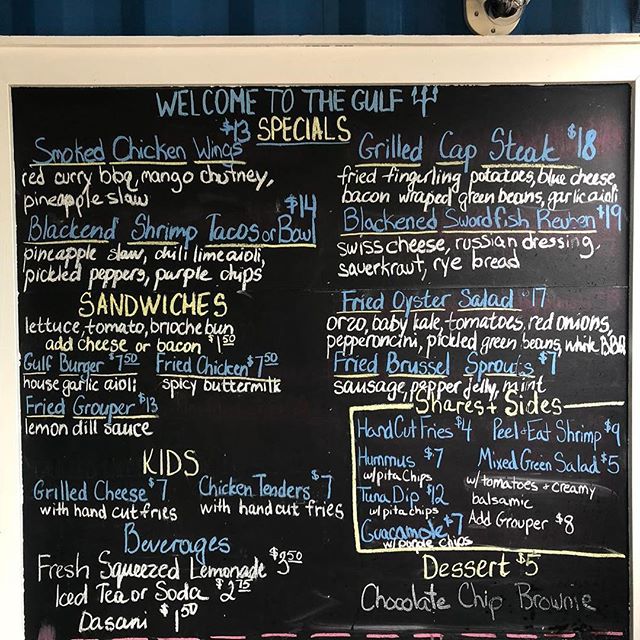 WELCOME TO THE GULF
SPECIALS
Smoked Chicken Wings $13
red curry bbq, mango chutney,
pineapple slaw
Blackend Shrimp Tacos or Bowl $14
pineapple slaw, chili lime aioli,
pickled peppers, purple chips
Grilled Cap Steak $18
fried fingurling potatoes, blue cheese,
bacon wraped green beans, garlic aioli
Blackened Swordfish Reuben $19
swiss cheese, russian dressing,
saurkraut, rye bread
Fried Oyster Salad $17
orzo, baby kale, tomatoes, red onions,
pepperoncini, pickled green beans, white BBQ
Fried Brussel Sprouts $7
sausage, pepper jelly, mint
SANDWICHES
lettuce, tomato, brioche bun
add cheese or bacon $1.50
Gulf Burger $7.50
house garlic aioli
Fried Chicken $7.50
spicy buttermilk
Fried Grouper $13
lemon dill sauce
KIDS
Grilled Cheese $7
with hand cut fries
Chicken Tenders $7
with hand cut fries
Beverages
Fresh Squeezed Lemonade $3.50
Iced Tea or Soda $2.75
Dasani $1.50
Shares + Sides
Hand Cut Fries $4
Hummus $7
w/pita chips
Tuna Dip $12
w/pita chips
Guacamole $7
w/purple chips
Peel + Eat Shrimp $9
Mixed Green Salad $5
w/tomatoes + creamy
balsamic
Add Grouper $8
Dessert $5
Chocolate Chip Brownie